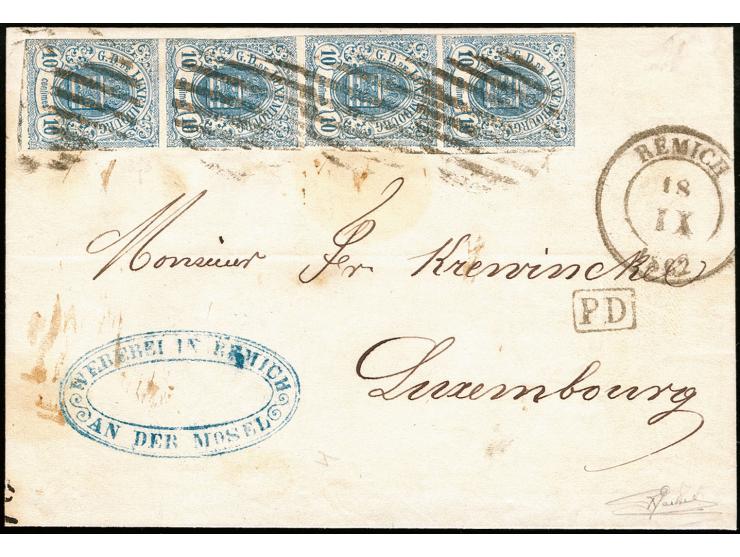 10 G.D. DE LUXEMBOURG centimes 10
10 G.D. DE LUXEMBOURG centimes 10
10 G.D. DE LUXEMBOURG centimes 10
10 G.D. DE LUXEMBOURG 10
REMICH
18
IX
1862
Monsieur Fr. Krewinckel
PD
Luxembourg
WEBEREI IN REMICH
AN DER MOSEL